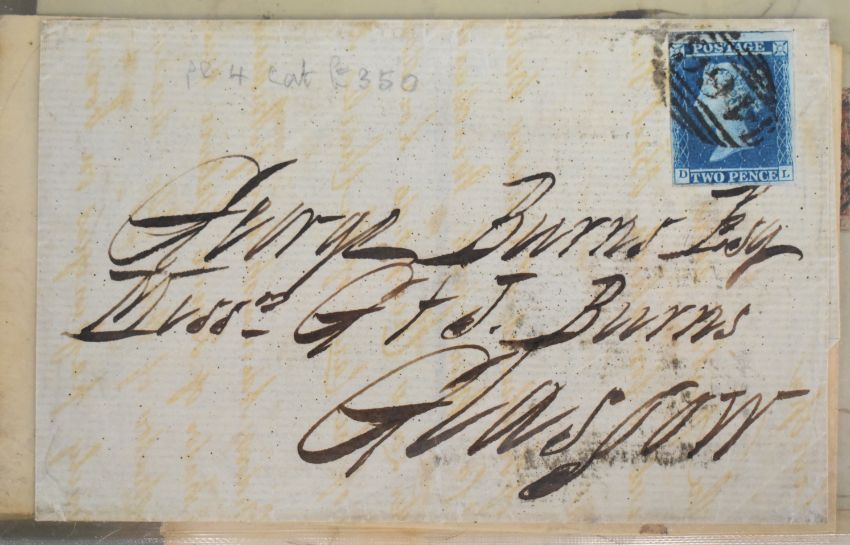 pl 4 cat £350
POSTAGE
D TWO PENCE L
George Burns Esq
Messrs G & J. Burns
Glasgow